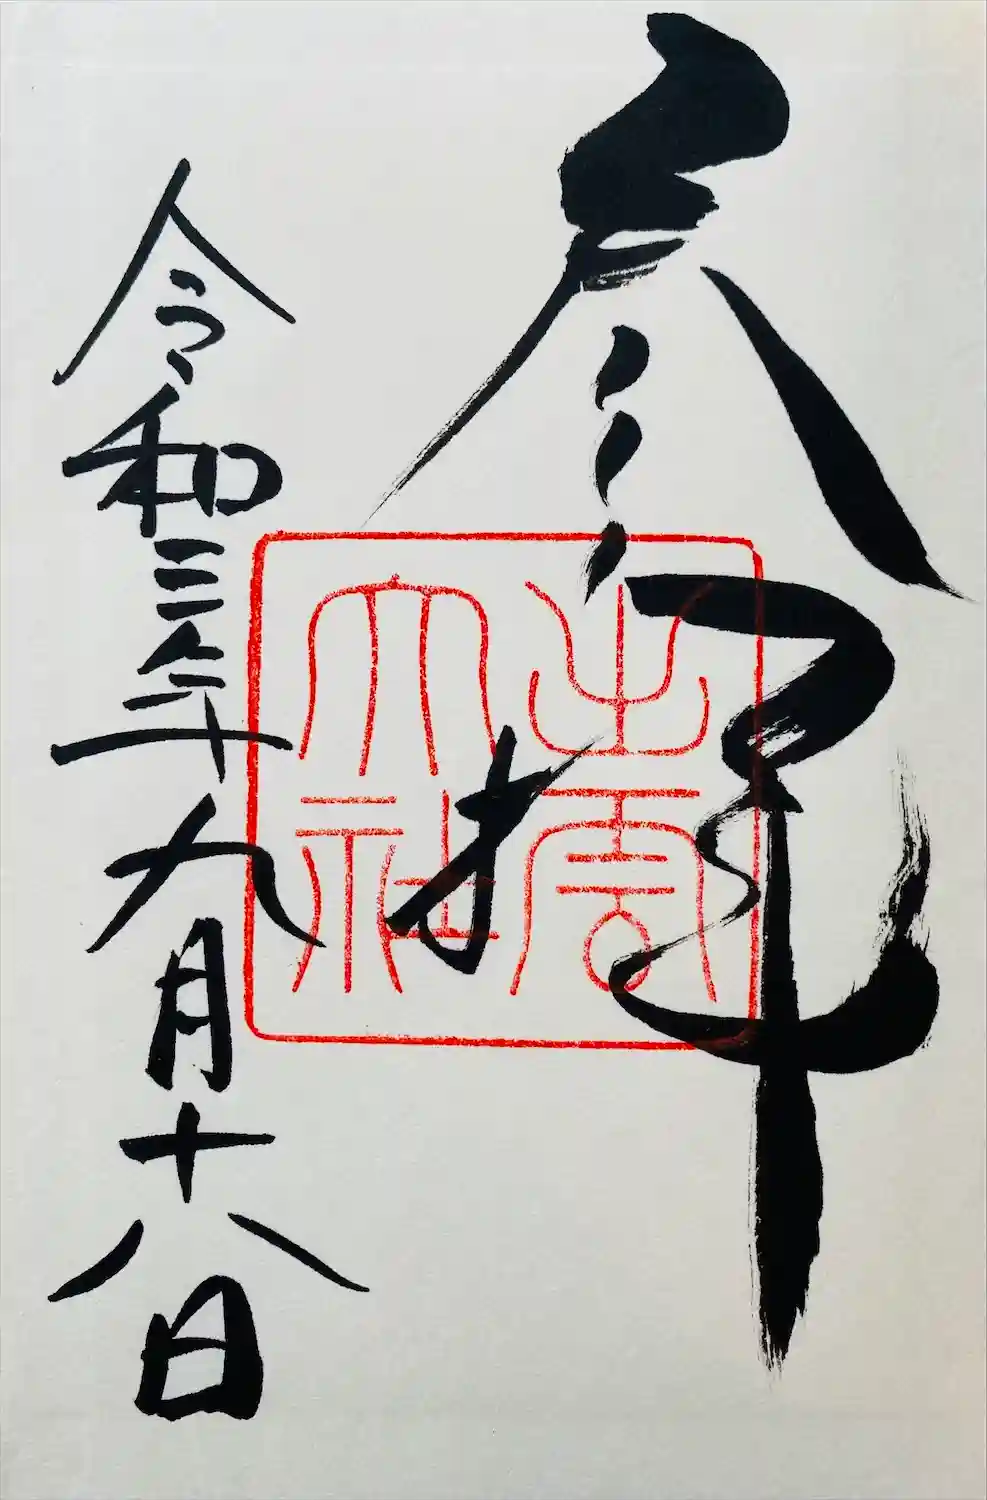 参拝
出雲大社
令和三年九月十八日